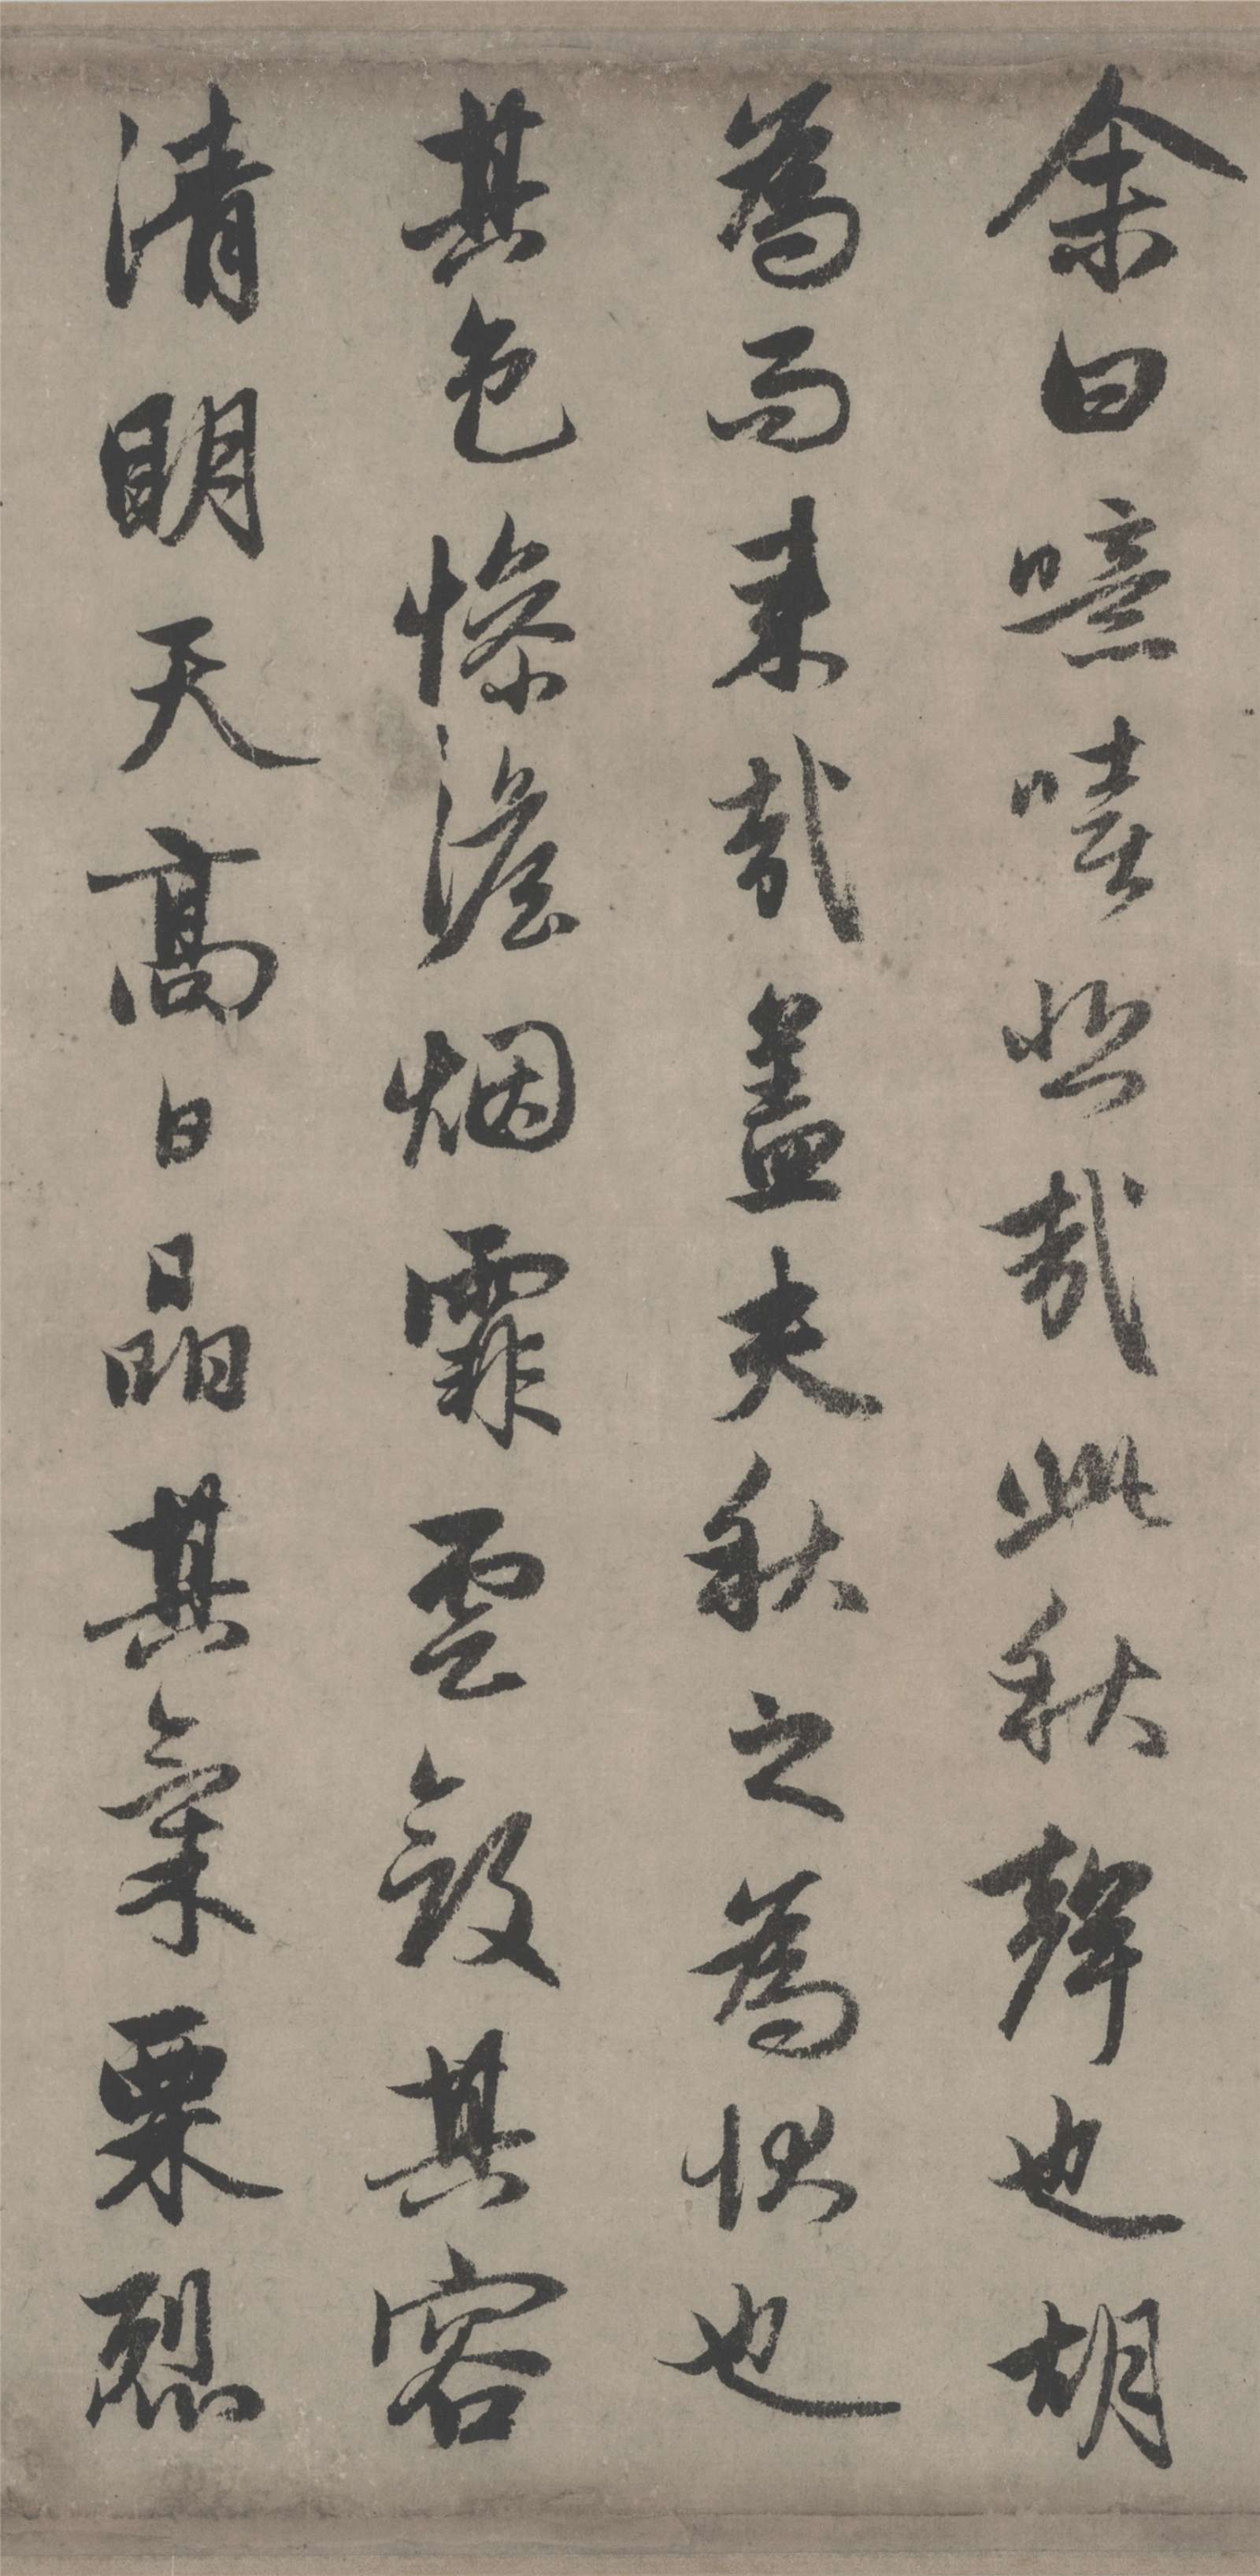 余曰噫嘻悲哉此秋聲也胡
為而来哉蓋夫秋之為狀也
其色慘澹烟霏雲斂其容
清明天高日晶其氣栗烈